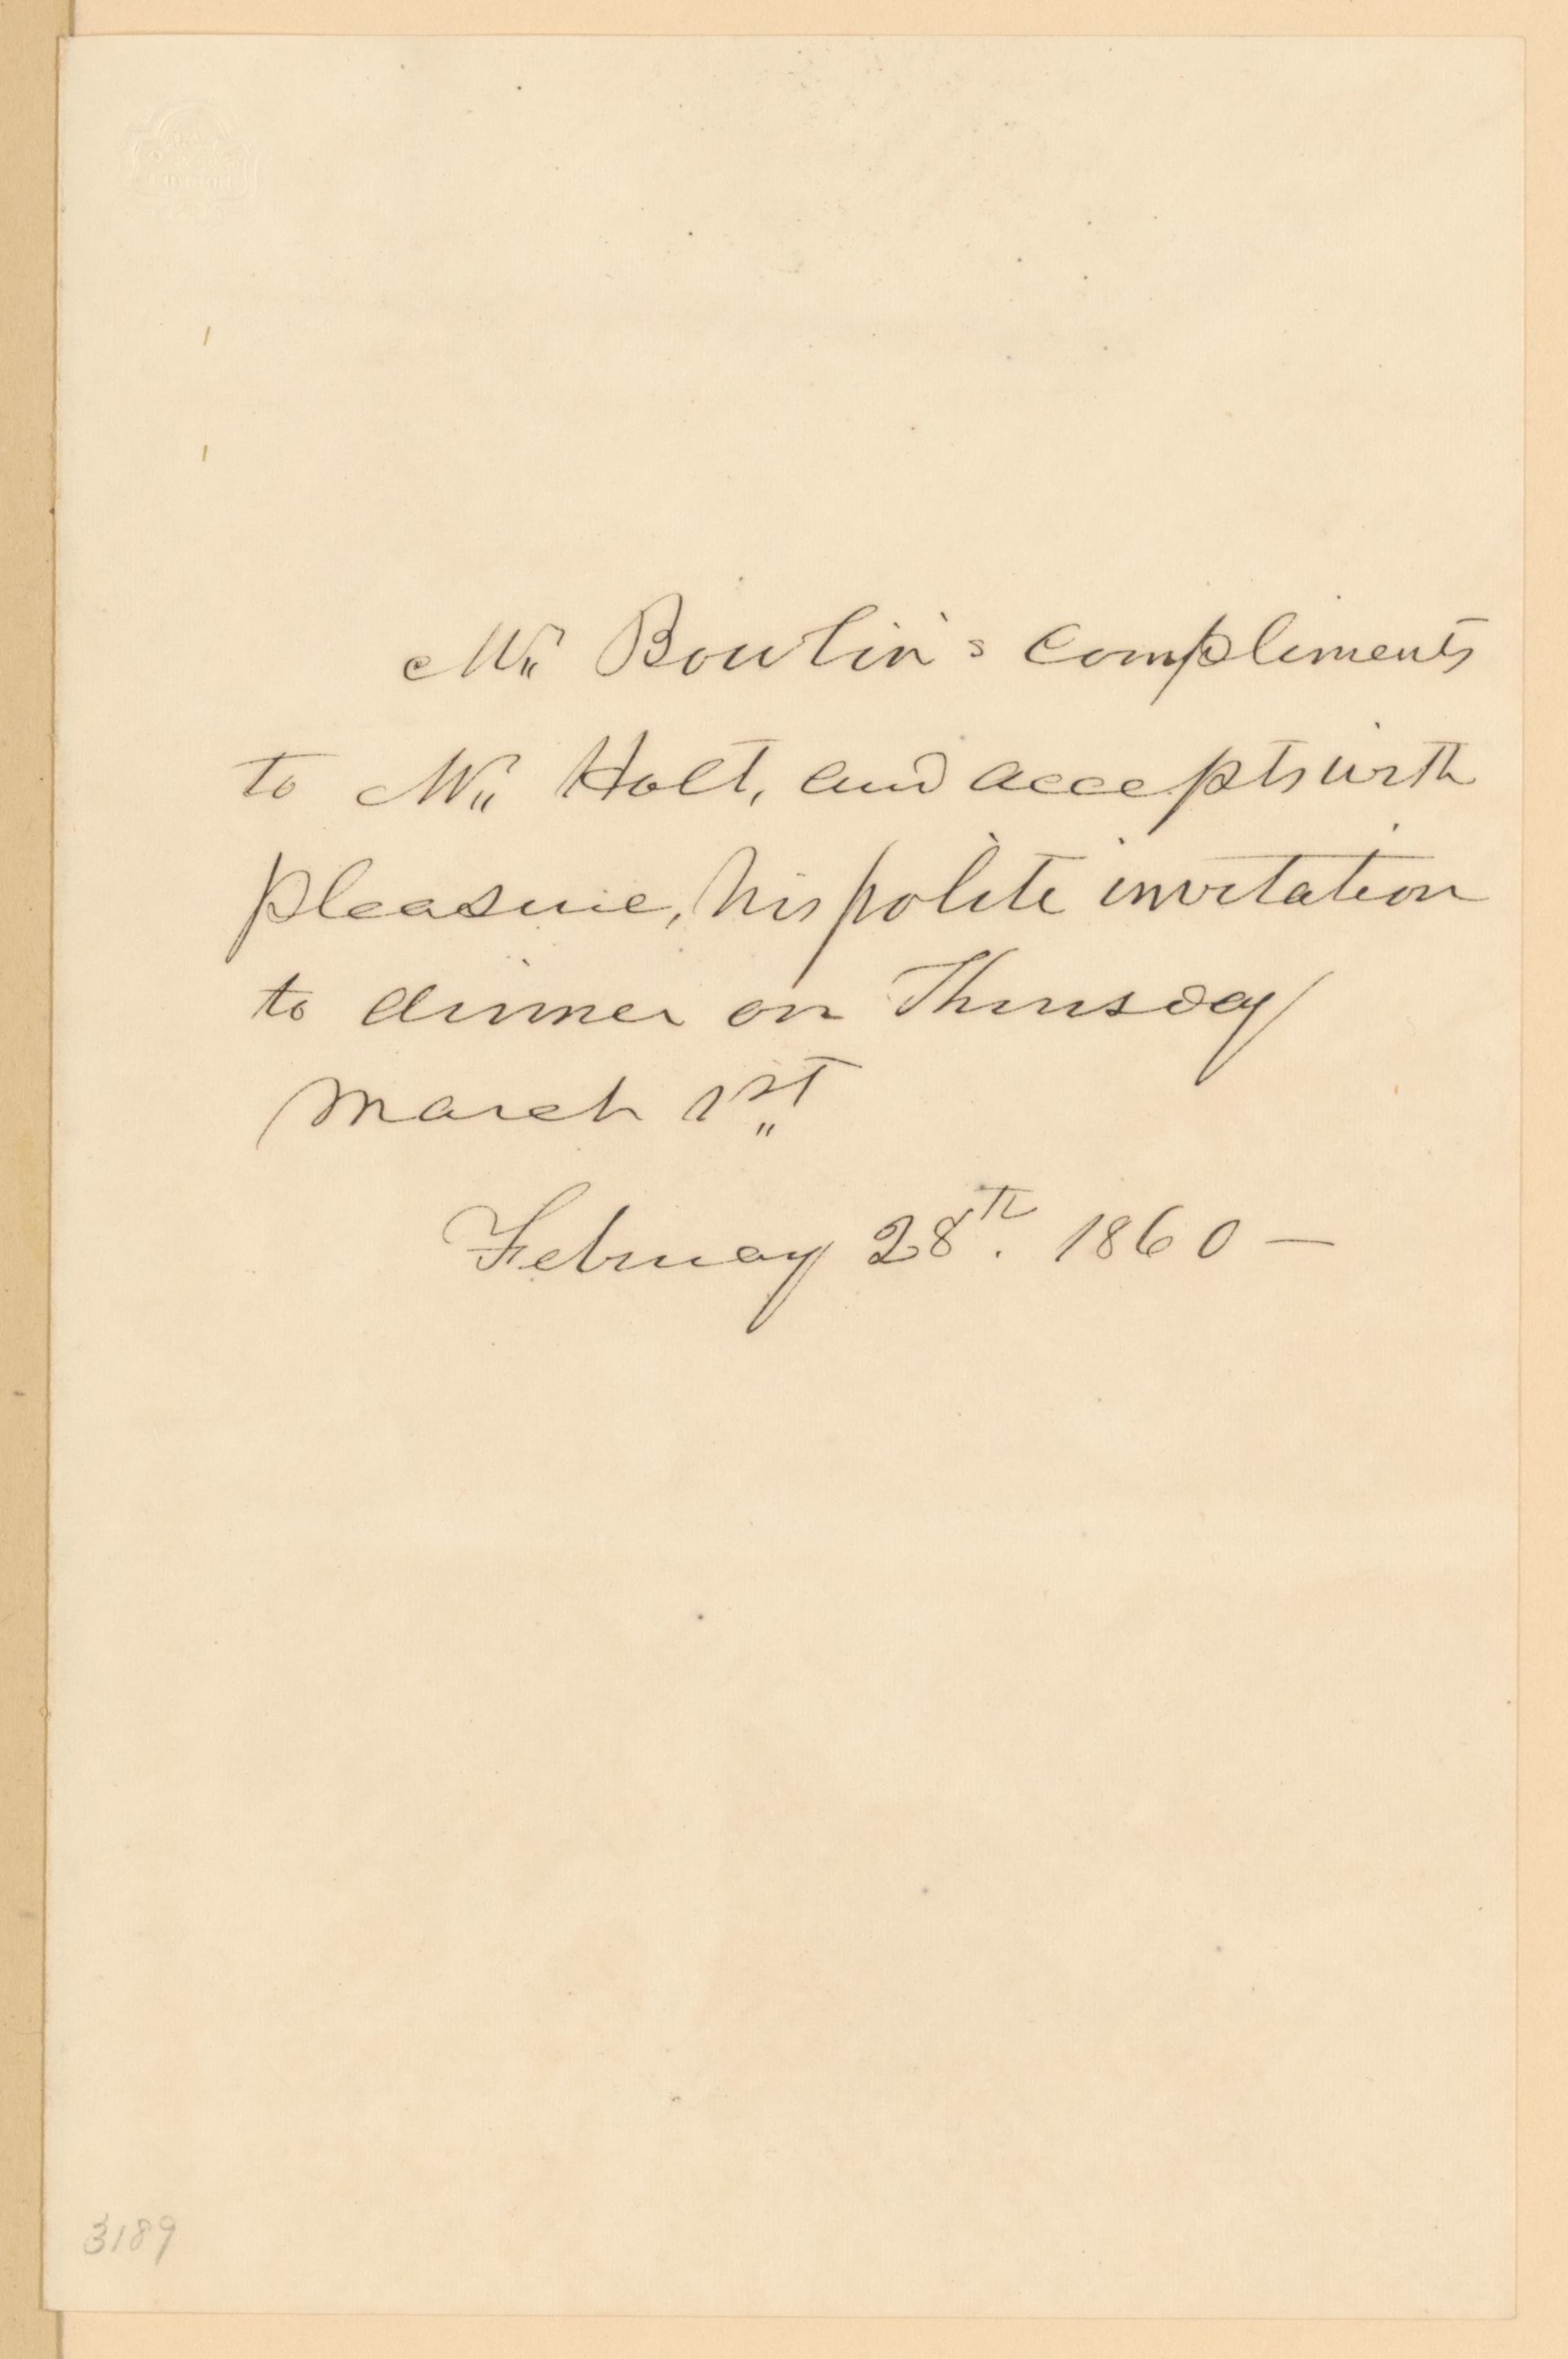 Mr Bowlin's compliments
to Mr Holt, and accepts with
pleasure, his polite invitation
to dinner on Thursday
March 1st
February 28th. 1860 —
3189